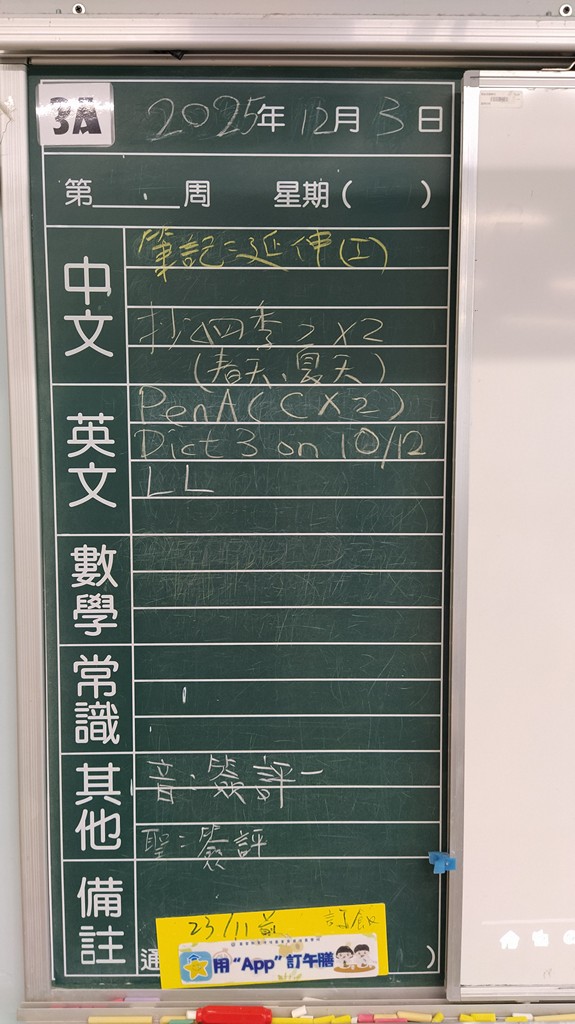 3A 2025年 12月 3日
第 周 星期( )
中文
筆記:延伸(工)
抄<四季>x2
(春天、夏天)
英文
PenA(Cx2)
Dict 3 on 10/12
LL
數學
常識
其他
音:簽評一
聖:簽評
備註
23/11前 訂飯
通 )
用"App"訂午膳